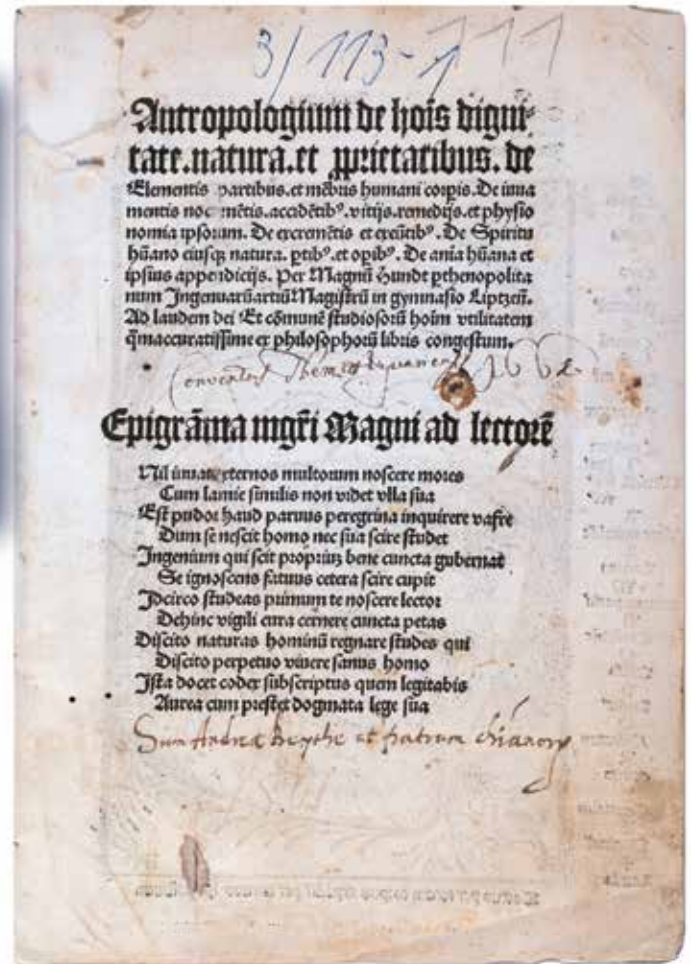 3/113-1
111
Antropologium de hoĩs digni⸗
tate.natura.et ꝓprietatibus. de
Elementis partibus.et mẽbris humani corpis. De iuua
mentis nocumẽtis.accidẽtibꝰ.vitijs.remedijs.et physio
nomia ipsorum. De excremẽtis et exeũtibꝰ. De Spiritu
hũano eiusqꝫ natura. ꝑtibꝰ.et opibꝰ. De anĩa hũana et
ipsius appendicijs. Per Magnũ Hundt ꝑthenopolita
num Ingenuarũ artiũ Magistrũ in gymnasio Liptzeñ.
Ad laudem dei Et cõmunẽ studiosorũ hoĩm vtilitatem
q̃maccuratissime ex philosophorũ libris congestum.
Conventus 1662
Epigrãma mgr̃i Magni ad lectorẽ
Nil iuuat externos multorum noscere mores
Cum lamie similis non videt vlla sua
Est pudor haud paruus peregrina inquirere vafre
Dum se nescit homo nec sua scire studet
Ingenium qui scit propriuꝫ bene cuncta gubernat
Se ignoscens fatuus cetera scire cupit
Idcirco studeas primum te noscere lector
Dehinc vigili cura cernere cuncta petas
Discito naturas hominũ regnare studes qui
Discito perpetuo viuere sanus homo
Ista docet codex subscriptus quem legitabis
Aurea cum prestet dogmata lege sua
Sum Andreæ Beythe et fratrum